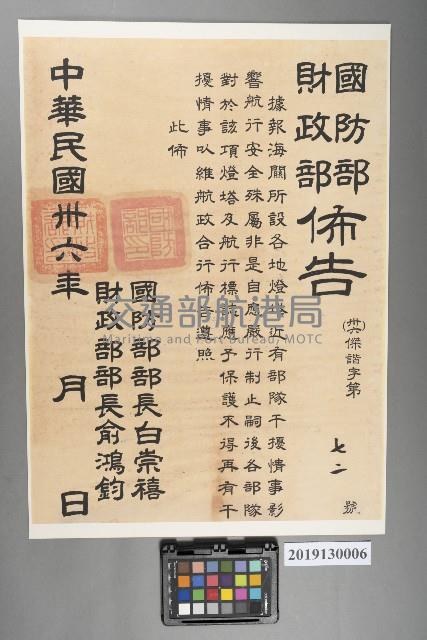 國防部
財政部
佈告
(卅六)傑諧字第 七二 號
據報海關所設各地燈塔近有部隊干擾情事影
響航行安全殊屬非是自應嚴行制止嗣後各部隊
對於該項燈塔及航行標誌應予保護不得再有干
擾情事以維航政合行佈告遵照
此佈
國防部部長白崇禧
財政部部長俞鴻鈞
中華民國卅六年 月 日
交通部航港局
Maritime and Port Bureau, MOTC
2019130006